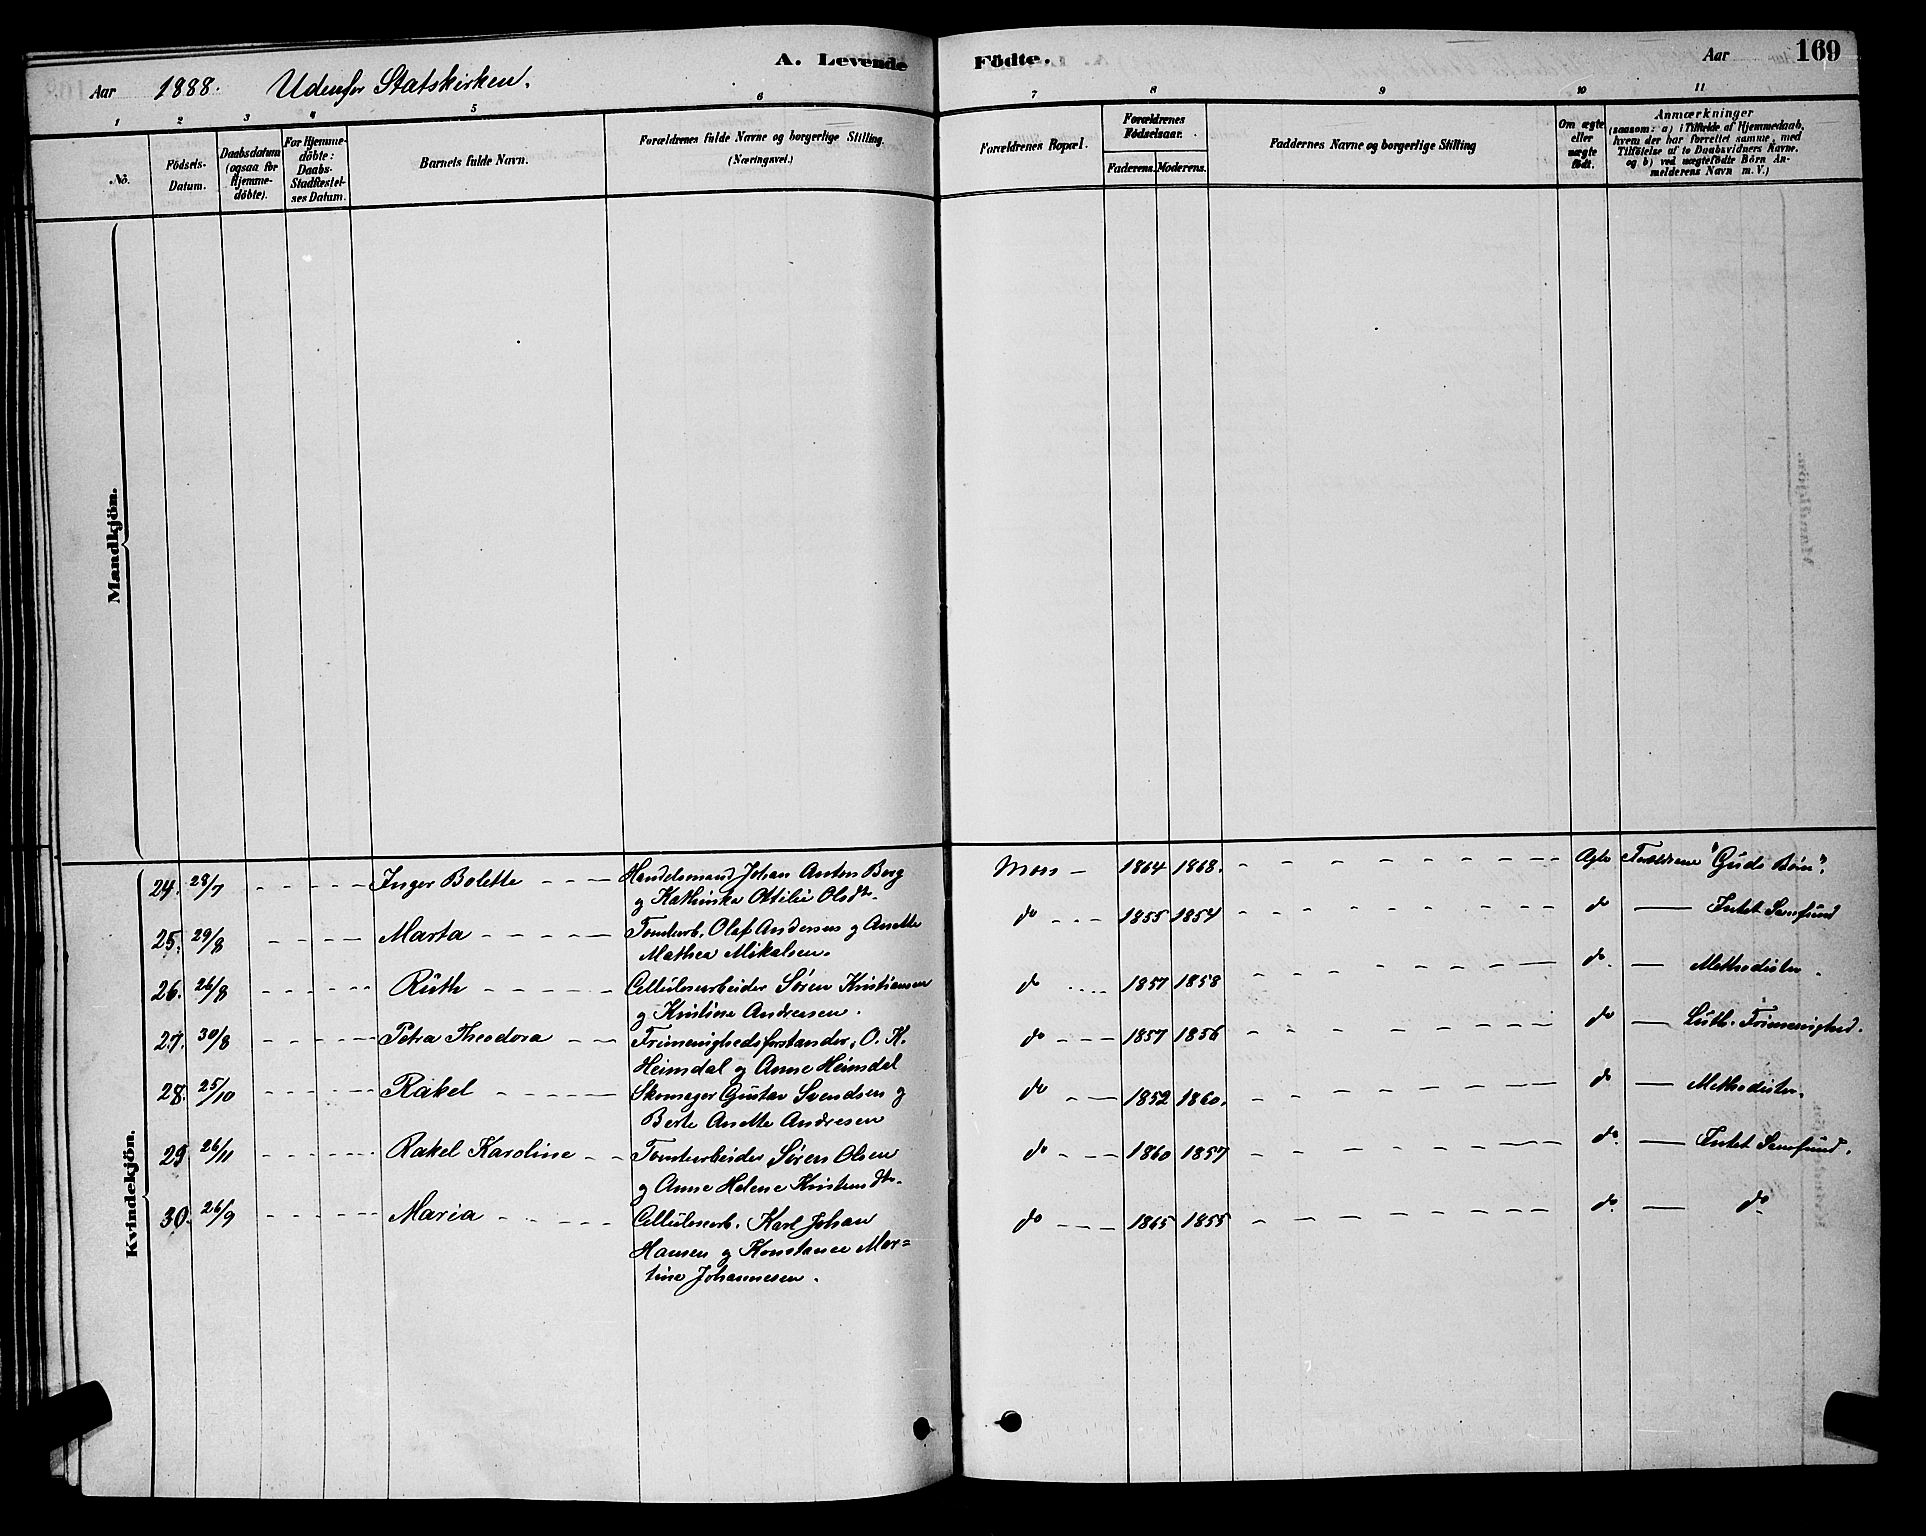 Aar 1888. Udenfor Statskirken.
A. Levende Födte.
Aar 169
1 2 3 4 5 6 7 8 9 10 11
No.
Födsels-Datum.
Daabsdatum (ogsaa for Hjemmedöbte).
For Hjemmedöbte: Daabs-Stadfæstelses Datum.
Barnets fulde Navn.
Forældrenes fulde Navne og borgerlige Stilling. (Næringsvei.)
Forældrenes Bopæl.
Forældrenes Födselsaar.
Faderens. Moderens.
Faddernes Navne og borgerlige Stilling
Om ægte eller uægte födt.
Anmærkninger
(saasom: a) i Tilfælde af Hjemmedaab,
hvem der har forrettet samme, med
Tilföielse af to Daabsvidners Navne,
og b) ved uægtefödte Börn An-
melderens Navn m. V.)
Mandkjön.
Kvindekjön.
24. 28/7 Inger Bolette Handelsmand Johan Anton Berg Moss 1864 1868. Ægte Forældrene "Guds Børn".
og Kathinka Ottilie Olsdtr.
25. 29/8 Marta Tomtearb. Olaf Andersen og Anette do 1855 1854 do Intet Samfund
Mathea Mikalsen.
26. 26/8 Ruth Cellulosearbeider Søren Kristiansen do 1857 1858 do. Methodister.
og Kristine Andreasen.
27. 30/8 Petra Theodora Frimenighedsforstander, O. K. do 1857 1856 do Luth. Frimenighed.
Heimdal og Anne Heimdal
28. 25/10 Rakel Skomager Gustav Svendsen og do 1852 1860. do Methodister.
Berte Anette Andresen
29. 26/11 Rakel Karoline Tomtearbeider Søren Olsen do 1860 1857 do. Intet Samfund.
og Anne Helene Kristensdtr.
30. 26/9 Maria Cellulosearb. Karl Johan do 1865 1855 do. do
Hansen og Konstance Mar=
tine Johannesen.